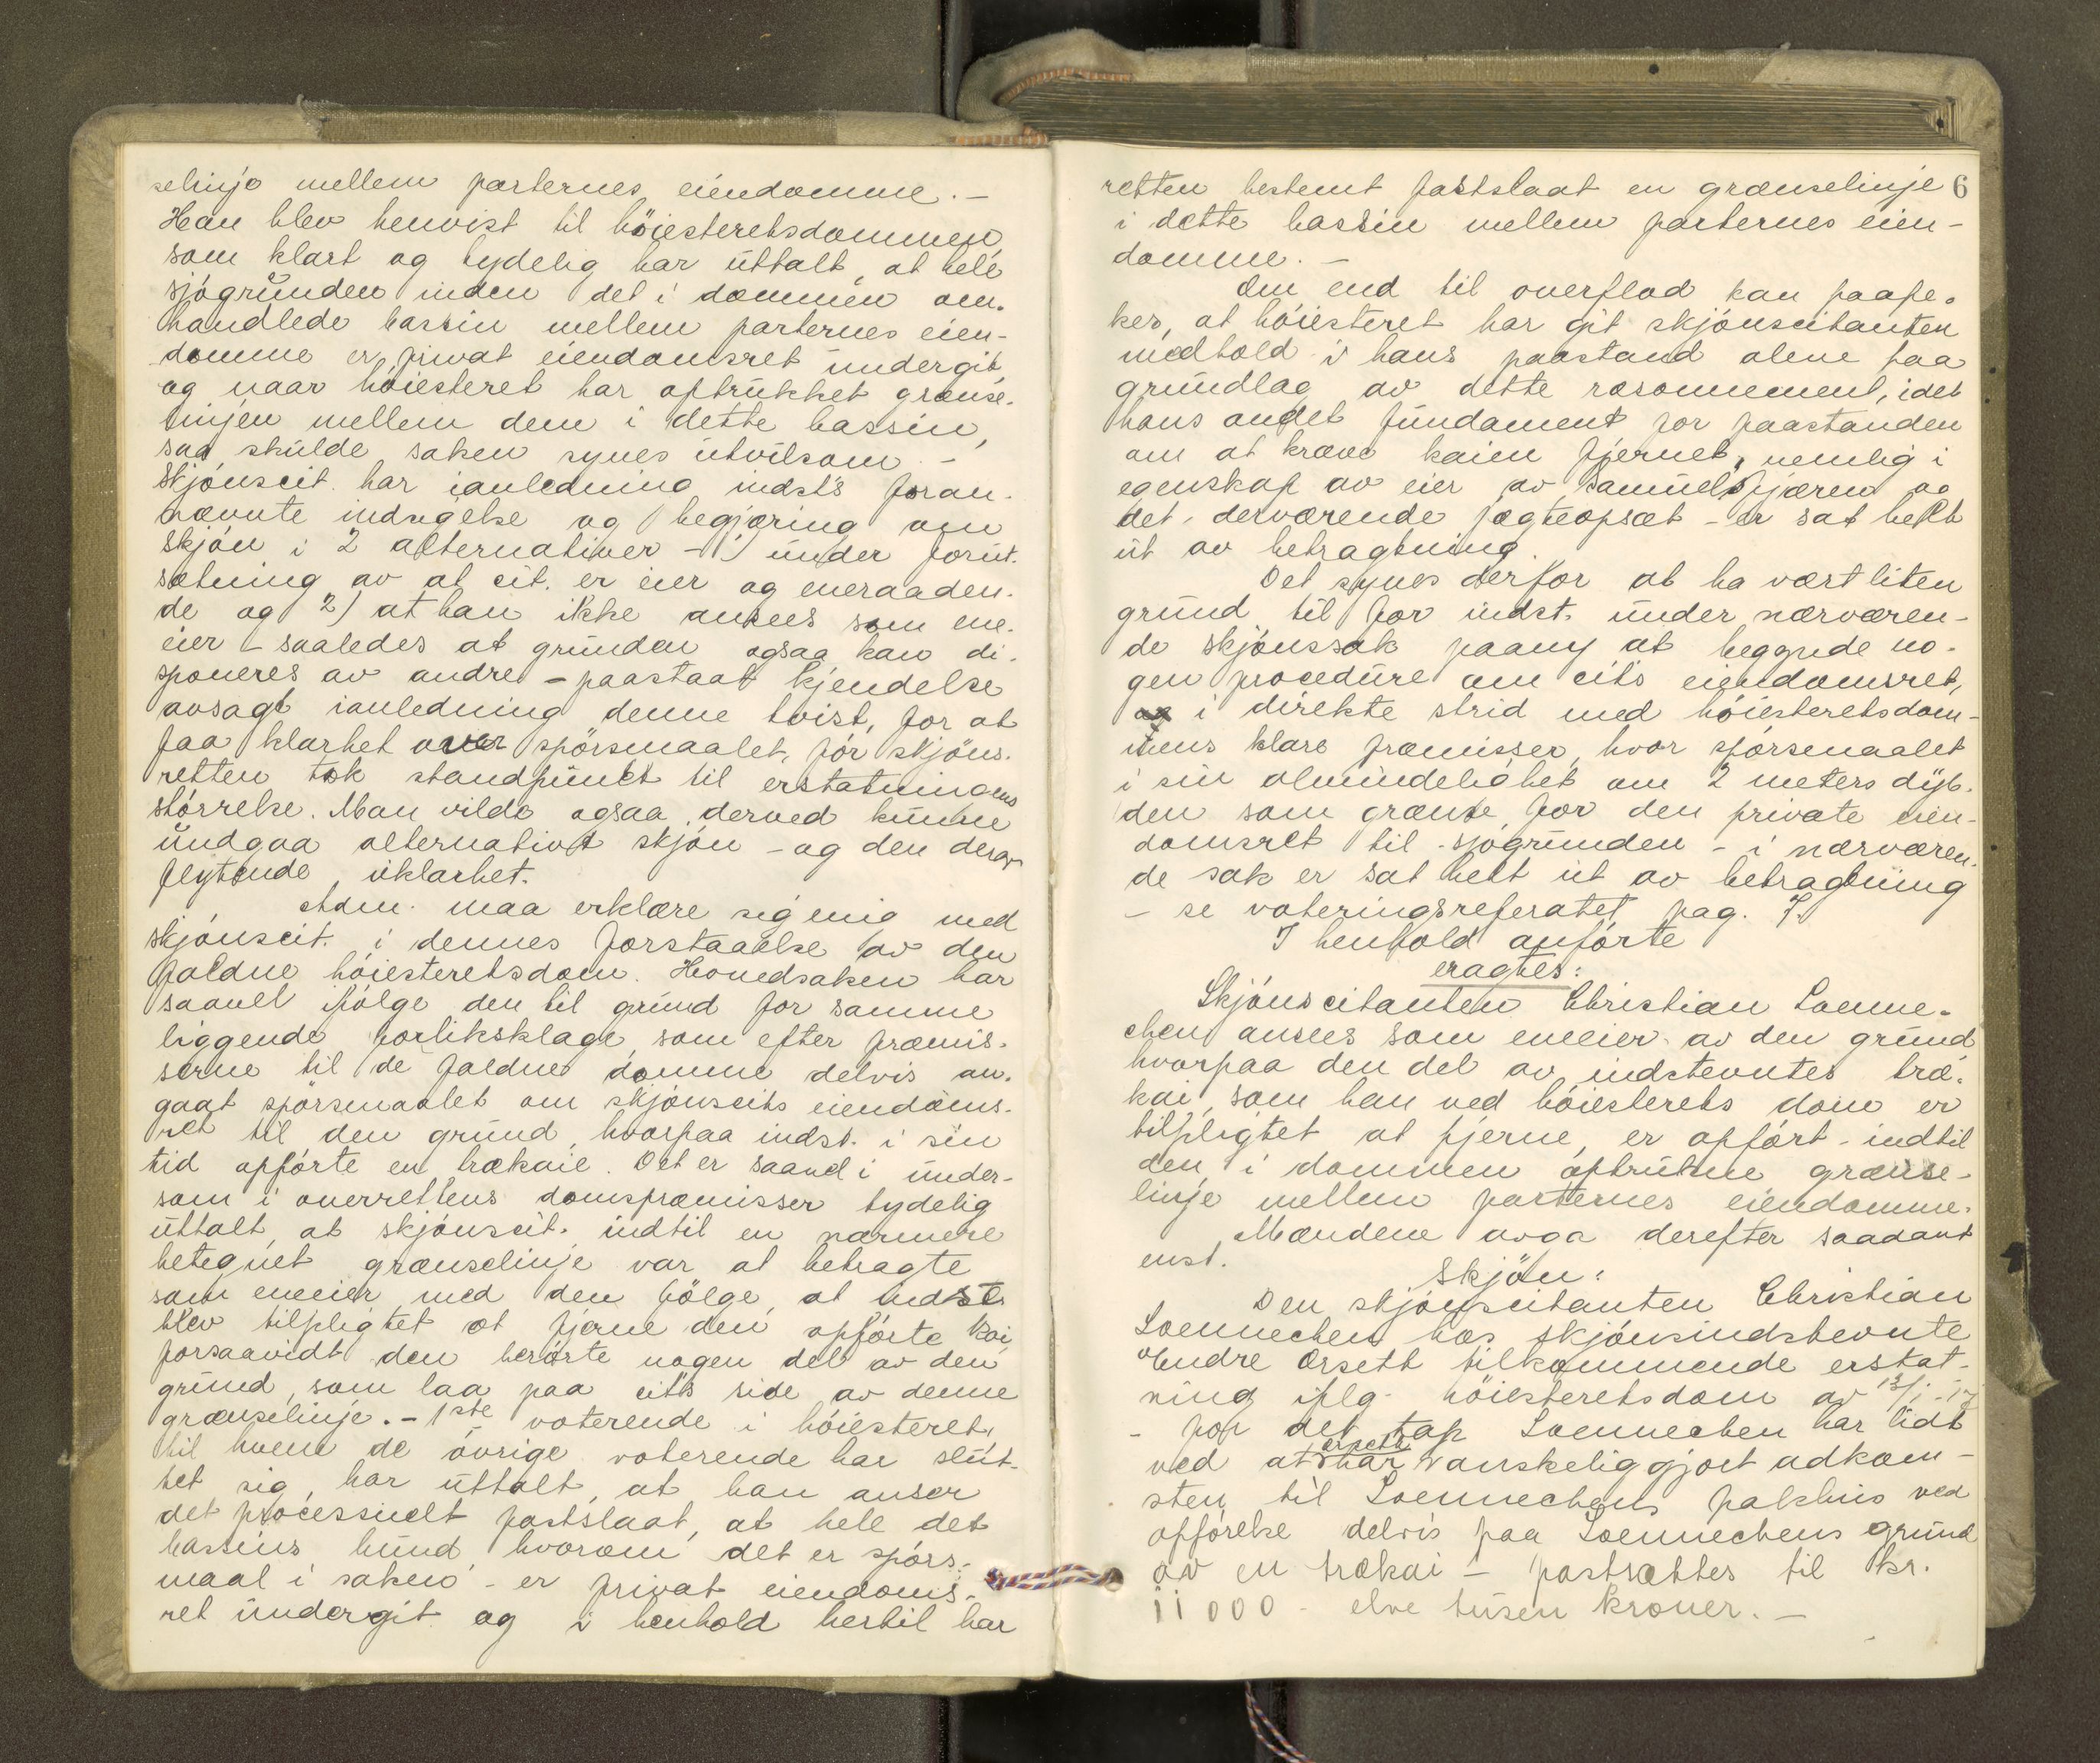 selinje mellem parternes eiendomme. -
Han blev henvist til höiesteretsdommen,
som klart og tydelig har uttalt, at hele
sjögrunden inden det i dommen om-
handlede bassin mellem parternes eien-
domme er privat eiendomsret undergit
og naar höiesteret har optrukket grænse-
linjen mellem dem i dette bassin,
saa skulde saken synes utvilsom. -
Skjönscit. har ianledning indst's foran-
nævnte indsigelse og begjæring om
skjön i 2 alternativer - 1) under forut-
sætning av at cit. er eier og eneraaden-
de og 2) at han ikke ansees som ene-
eier - saaledes at grunden ogsaa kan di-
sponeres av andre - paastaat kjendelse
avsagt ianledning denne tvist, for at
faa klarhet over spörsmaalet, för skjöns-
retten tok standpunkt til erstatningens
störrelse. Man vilde ogsaa derved kunne
undgaa alternativt skjön - og den derav
flytende uklarhet.
Adm. maa erklære sig enig med
skjönscit. i dennes forstaaelse av den
faldne höiesteretsdom. Hovedsaken har
saavel ifölge den til grund for samme
liggende forliksklage, som efter præmis-
serne til de faldne domme delvis an-
gaat spörsmaalet om skjönscits eiendoms-
ret til den grund, hvorpaa indst. i sin
tid opförte en trækaie. Det er saavel i under-
som i overrettens domspræmisser tydelig
uttalt, at skjönscit. indtil en nærmere
betegnet grænselinje var at betragte
som eneeier med den fölge, at indst.
blev tilpligtet at fjerne den opförte kai,
forsaavidt den berörte nogen del av den
grund, som laa paa cit's side av denne
grænselinje. - 1ste voterende i höiesteret,
til hvem de övrige voterende har slut-
tet sig, har uttalt, at han anser
det processuelt fastslaat, at hele det
bassins bund, hvorom det er spörs-
maal i saken - er privat eiendoms-
ret undergit og i henhold hertil har
retten bestemt fastslaat en grænselinje 6
i dette bassin mellem parternes eien-
domme. -
Om end til overflod kan paape-
kes, at höiesteret har git skjönscitanten
medhold i hans paastand alene paa
grundlag av dette rasonnement, idet
hans andet fundament for paastanden
om at kræve kaien fjernet, nemlig i
egenskap av eier av Samuelsfjæren og
det derværende jægteopsæt - er sat helt
ut av betragtning.
Det synes derfor at ha vært liten
grund til for indst. under nærværen-
de skjönssak paany at begynde no-
gen procedure om cit's eiendomsret,
i direkte strid med höiesteretsdom-
mens klare præmisser, hvor spörsmaalet
i sin almindelighet om 2 meters dyb-
den som grænse for den private eien-
domsret til sjögrunden - i nærværen-
de sak er sat helt ut av betragtning
- se voteringsreferatet pag. 7.
I henhold anförte
eragtes:
Skjönscitanten Christian Loenne-
chen ansees som eneeier av den grund
hvorpaa den del av indstevntes træ-
kai, som han ved höiesterets dom er
tilpligtet at fjerne, er opfört - indtil
den i dommen optrukne grænse-
linje mellem parternes eiendomme.
Mændene avga derefter saadant
enst.
Skjön:
Den skjönscitanten Christian
Loennechen hos skjönsindstevnte
Endre Orsett tilkommende erstat-
ning iflg. höiesteretsdom av 13/1-17
- for det tap Loennechen har lidt
ved at Orsett har vanskeliggjort adkom-
sten til Loennechens pakhus ved
opförelse delvis paa Loennechens grund
av en trækai - fastsættes til kr.
11000 - elve tusen kroner. -